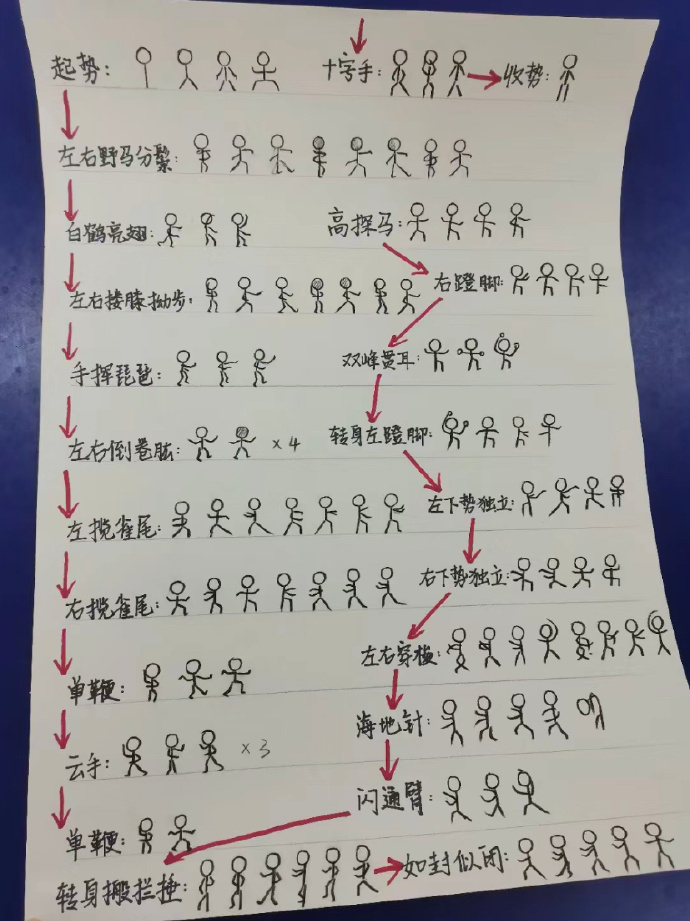 起势:
左右野马分鬃:
白鹤亮翅:
左右搂膝拗步:
手挥琵琶:
左右倒卷肱: ×4
左揽雀尾:
右揽雀尾:
单鞭:
云手: ×3
单鞭:
高探马:
右蹬脚:
双峰贯耳:
转身左蹬脚:
左下势独立:
右下势独立:
左右穿梭:
海地针:
闪通臂:
转身搬拦捶:
如封似闭:
十字手:
收势: